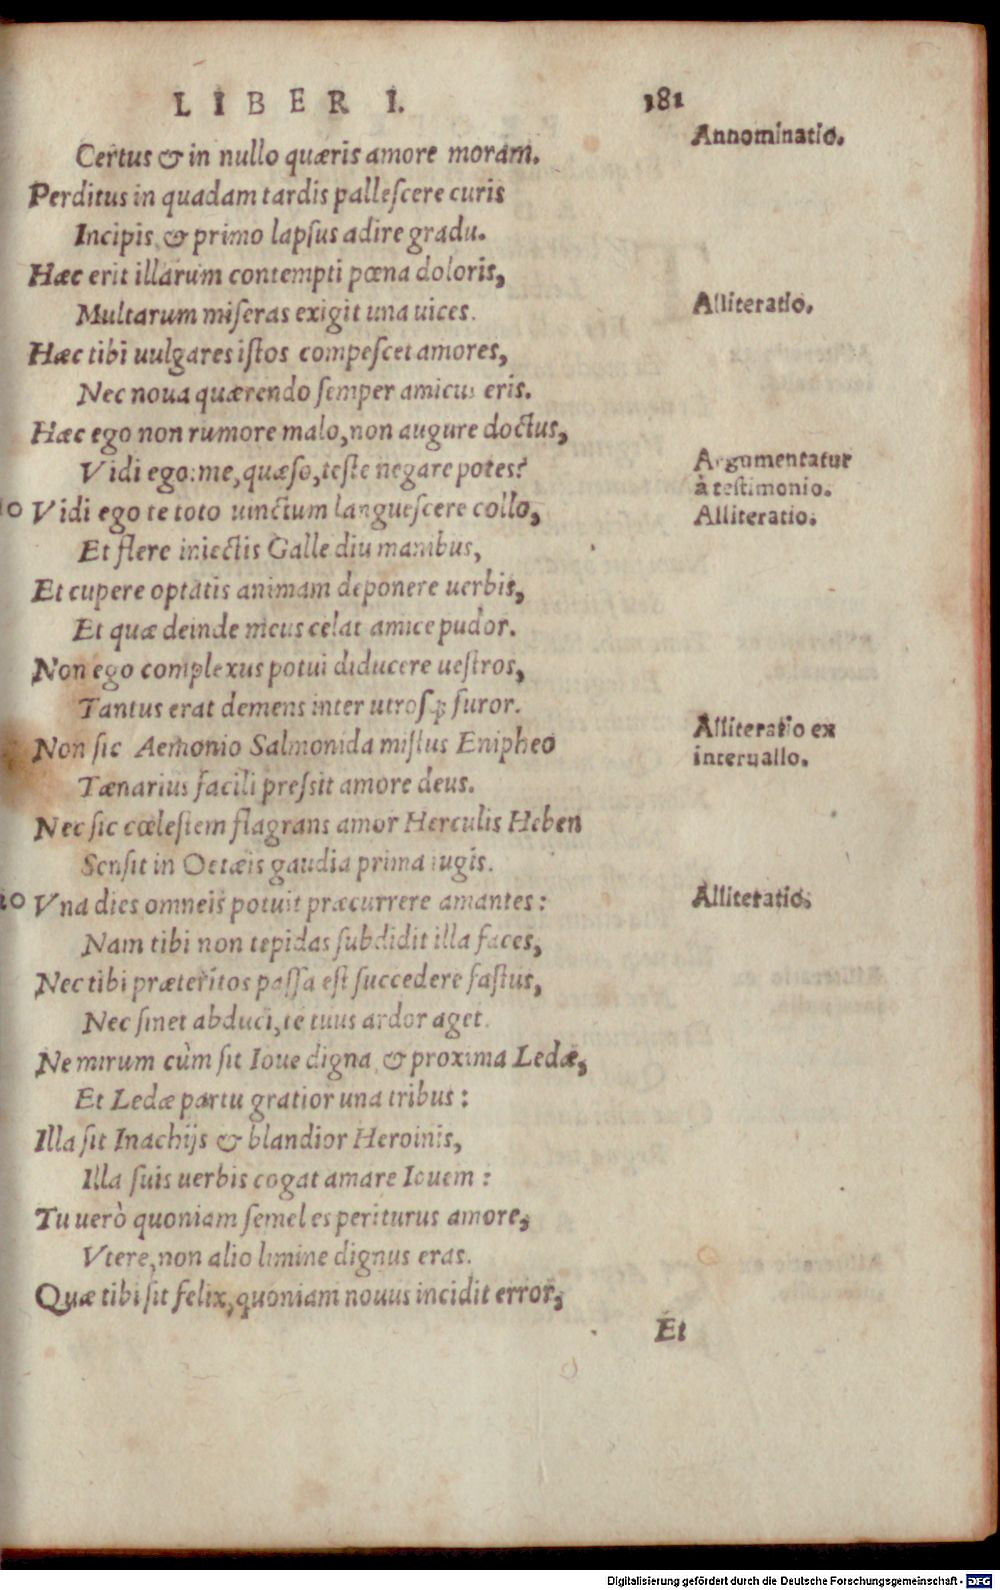 LIBER I. 181
Certus & in nullo quæris amore moram. Annominatio.
Perditus in quadam tardis pallescere curis
Incipis, & primo lapsus adire gradu.
Hæc erit illarum contempti pœna doloris,
Multarum miseras exigit una uices. Alliteratio.
Hæc tibi uulgares istos compescet amores,
Nec noua quærendo semper amicus eris.
Hæc ego non rumore malo, non augure doctus,
Vidi ego: me, quæso, teste negare potes? Argumentatur
à testimonio.
10 Vidi ego te toto uinctum languescere collo, Alliteratio.
Et flere iniectis Galle diu manibus,
Et cupere optatis animam deponere uerbis,
Et quæ deinde meus celat amice pudor.
Non ego complexus potui diducere uestros,
Tantus erat demens inter utrosq; furor.
Non sic Aemonio Salmonida mistus Enipheo Alliteratio ex
interuallo.
Tænarius facili pressit amore deus.
Nec sic cœlestem flagrans amor Herculis Heben
Sensit in Oetæis gaudia prima iugis.
20 Vna dies omneis potuit præcurrere amantes: Alliteratio.
Nam tibi non tepidas subdidit illa faces,
Nec tibi præteritos passa est succedere fastus,
Nec sinet abduci, te tuus ardor aget.
Ne mirum cùm sit Ioue digna & proxima Ledæ,
Et Ledæ partu gratior una tribus:
Illa sit Inachijs & blandior Heroinis,
Illa suis uerbis cogat amare Iouem:
Tu uerò quoniam semel es periturus amore,
Vtere, non alio limine dignus eras.
Quæ tibi sit felix, quoniam nouus incidit error,
Et
Digitalisierung gefördert durch die Deutsche Forschungsgemeinschaft - DFG